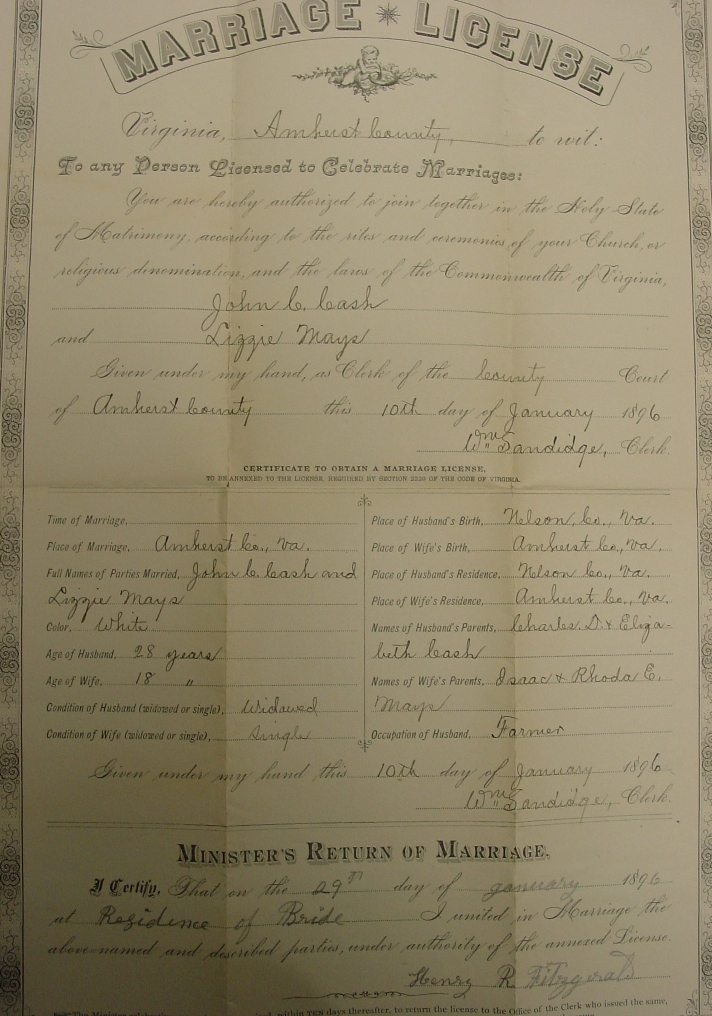 MARRIAGE LICENSE
Virginia, Amherst County, to wit:
To any Person Licensed to Celebrate Marriages:
You are hereby authorized to join together in the Holy State
of Matrimony, according to the rites and ceremonies of your Church, or
religious denomination, and the laws of the Commonwealth of Virginia,
John C. Cash
and Lizzie Mays
Given under my hand, as Clerk of the County Court
of Amherst County this 10th day of January 1896
Wm Sandidge, Clerk.
CERTIFICATE TO OBTAIN A MARRIAGE LICENSE,
TO BE ANNEXED TO THE LICENSE, REQUIRED BY SECTION 2229 OF THE CODE OF VIRGINIA.
Time of Marriage,
Place of Marriage, Amherst Co., Va.
Full Names of Parties Married, John C. Cash and
Lizzie Mays
Color, White
Age of Husband, 28 years
Age of Wife, 18 "
Condition of Husband (widowed or single), Widowed
Condition of Wife (widowed or single), Single
Place of Husband's Birth, Nelson, Co., Va.
Place of Wife's Birth, Amherst Co., Va.
Place of Husband's Residence, Nelson Co., Va.
Place of Wife's Residence, Amherst Co., Va.
Names of Husband's Parents, Charles D. & Eliza-
beth Cash
Names of Wife's Parents, Isaac & Rhoda E.
Mays
Occupation of Husband, Farmer
Given under my hand this 10th day of January 1896
Wm Sandidge, Clerk.
MINISTER'S RETURN OF MARRIAGE.
I Certify, That on the 29th day of January 1896
at Residence of Bride I united in Marriage the
above-named and described parties, under authority of the annexed License.
Henry R. Fitzgerald
within TEN days thereafter, to return the license to the Office of the Clerk who issued the same,